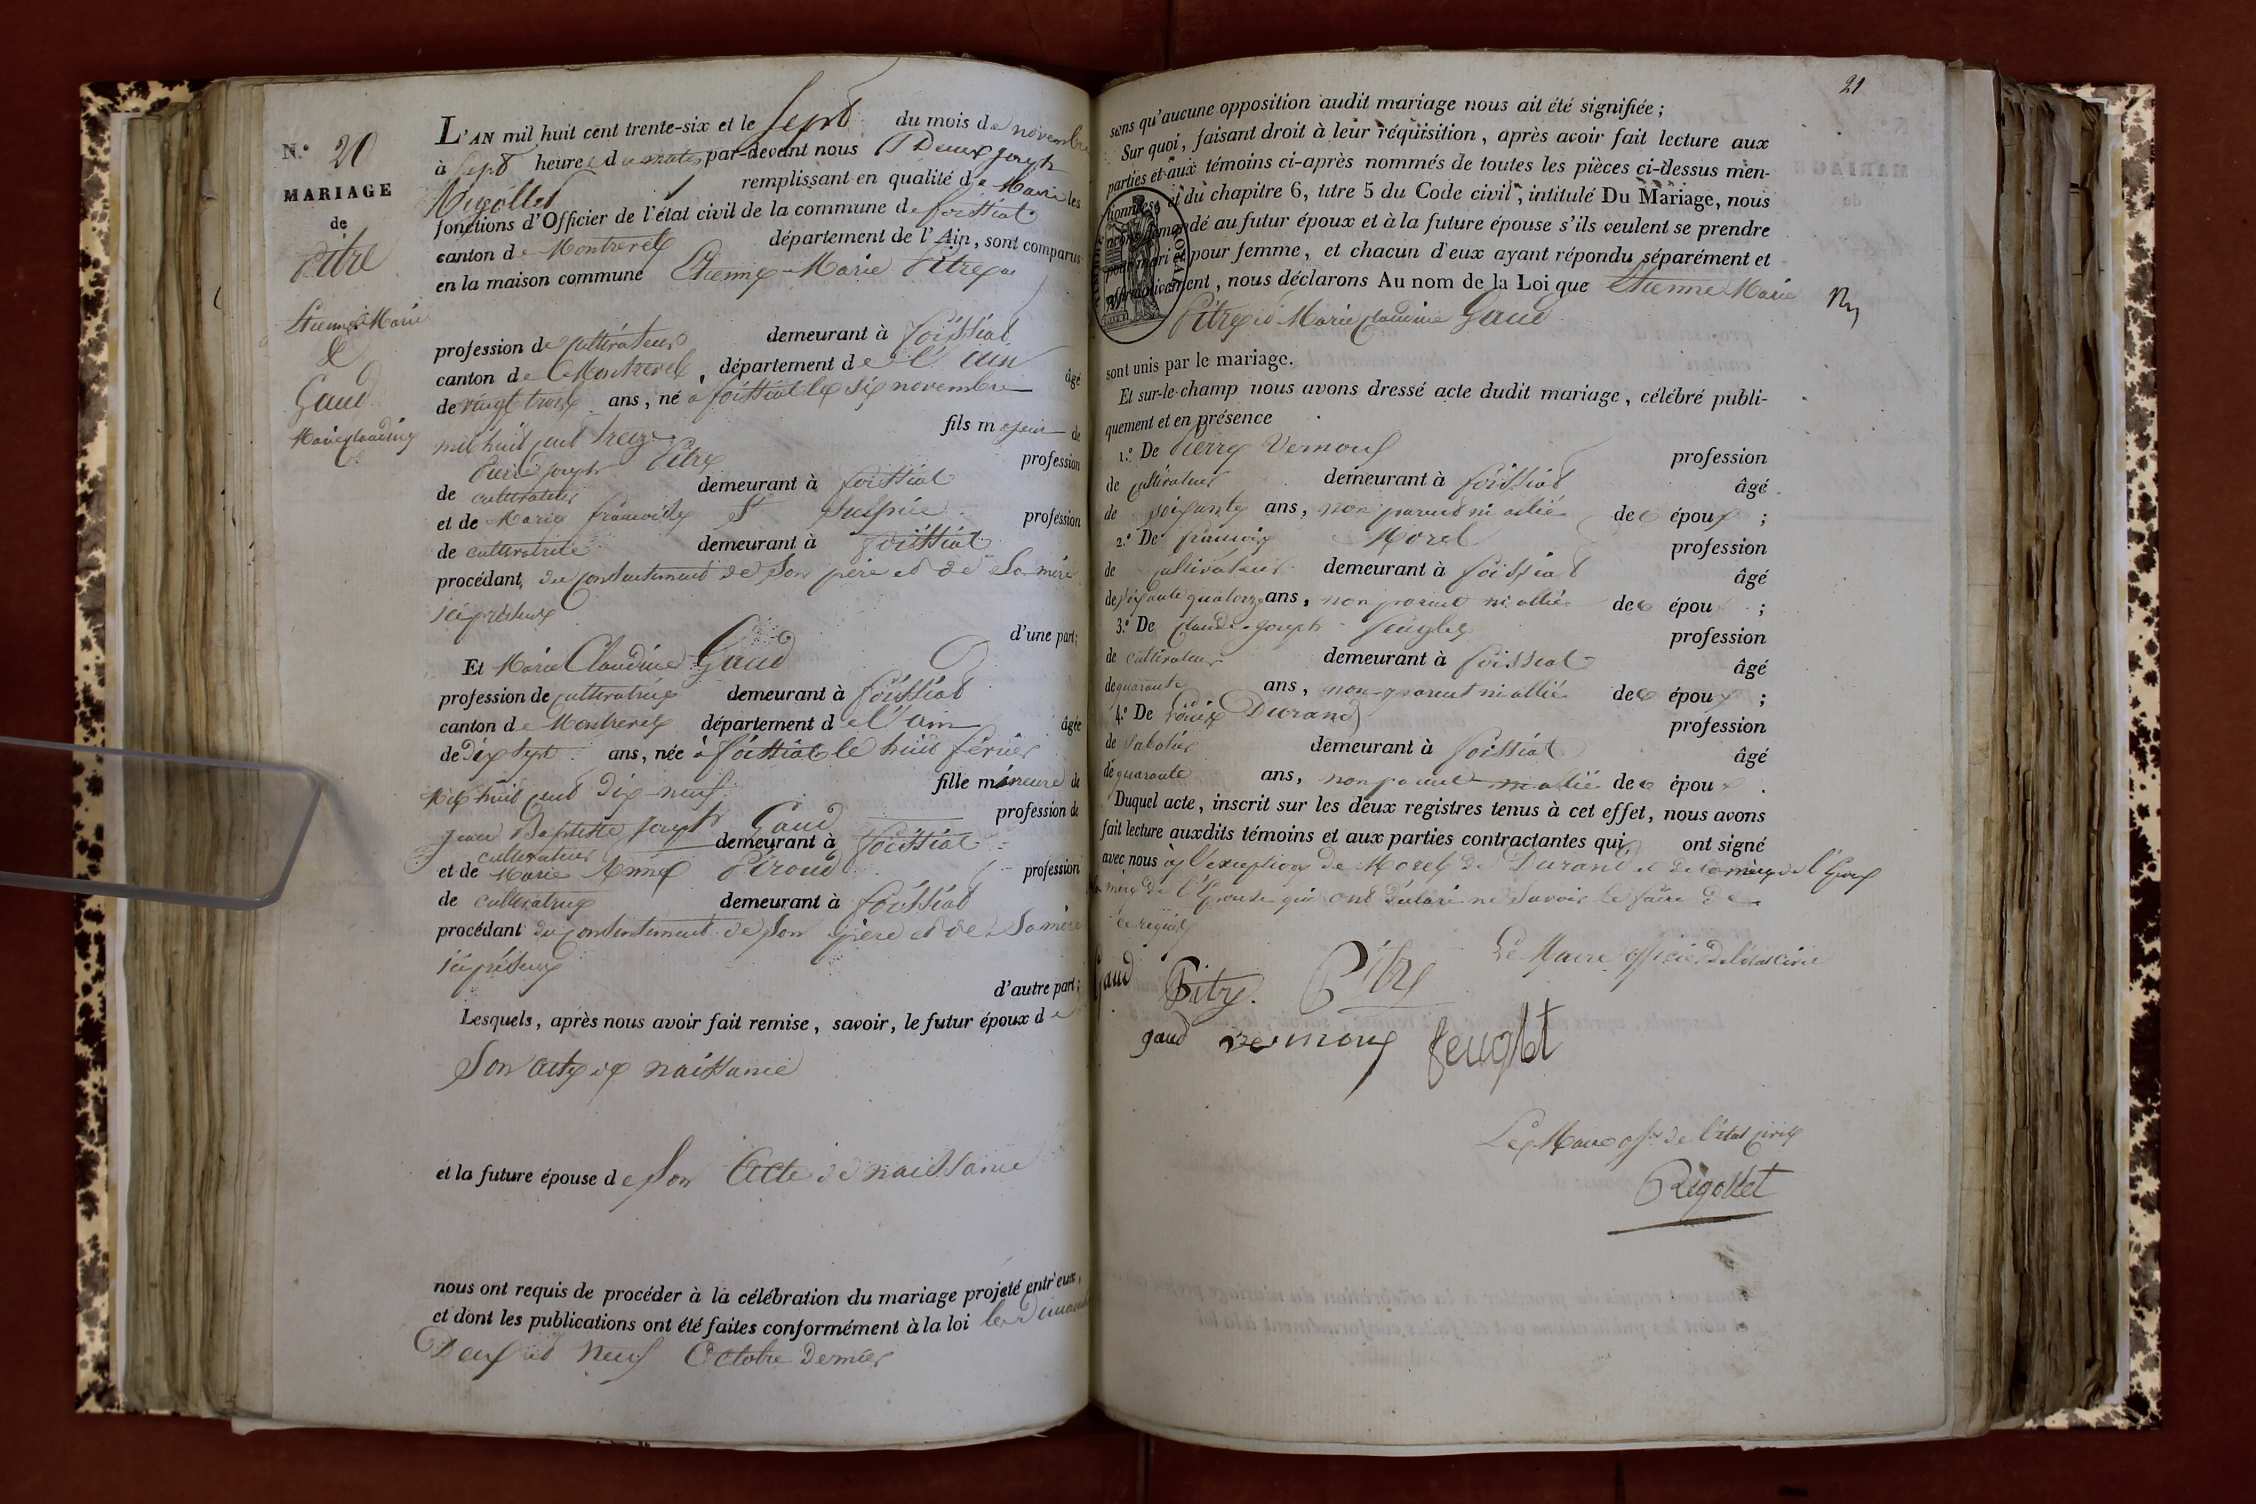 N.° 20
MARIAGE
de
Pitre
Etienne Marie
&
Gaud
Marie Claudine
L'AN mil huit cent trente-six et le sept du mois de novembre
à sept heures du matin par-devant nous Joseph
Rigollet remplissant en qualité de Maire les
fonctions d'Officier de l'état civil de la commune de foissiat
canton de Montrevel département de l'Ain, sont comparus
en la maison commune Etienne-Marie Pitre
profession de cultivateur demeurant à foissiat
canton de Montrevel, département de l'ain âgé
de vingt trois ans, né à foissiat le six novembre
mil huit cent treize fils majeur de
joseph Pitre profession
de cultivateur demeurant à foissiat
et de Marie françoise St Sulpice profession
de cultivatrice demeurant à foissiat
procédant du consentement de son père et de sa mère
ici présens
d'une part;
Et Marie Claudine Gaud
profession de cultivatrice demeurant à foissiat
canton de Montrevel département de l'ain âgée
de dix sept ans, née à foissiat le huit février
mil huit cent dix-neuf fille mineure de
jean Baptiste joseph Gaud profession de
cultivateur demeurant à foissiat
et de Marie Anne Péroud profession
de cultivatrice demeurant à foissiat
procédant du consentement de son père et de sa mère
ici présens
d'autre part;
Lesquels, après nous avoir fait remise, savoir, le futur époux de
son acte de naissance
et la future épouse de son acte de naissance
nous ont requis de procéder à la célébration du mariage projeté entr'eux,
et dont les publications ont été faites conformément à la loi les dimanches
Deux et neuf Octobre dernier
21
sans qu'aucune opposition audit mariage nous ait été signifiée;
Sur quoi, faisant droit à leur réquisition, après avoir fait lecture aux
parties et aux témoins ci-après nommés de toutes les pièces ci-dessus men-
tionnées et du chapitre 6, titre 5 du Code civil, intitulé Du Mariage, nous
avons demandé au futur époux et à la future épouse s'ils veulent se prendre
pour mari et pour femme, et chacun d'eux ayant répondu séparément et
affirmativement, nous déclarons Au nom de la Loi que Etienne Marie
Pitre et Marie Claudine Gaud
sont unis par le mariage.
Et sur-le-champ nous avons dressé acte dudit mariage, célébré publi-
quement et en présence
1.° De Pierre Vernoux profession
de cultivateur demeurant à foissiat âgé
de soixante ans, non parent ni allié des époux;
2.° De françois Morel profession
de cultivateur demeurant à foissiat âgé
de soixante quatorze ans, non parent ni allié des époux;
3.° De Claude-joseph feuglet profession
de cultivateur demeurant à foissiat âgé
de quarante ans, non parent ni allié des époux;
4.° De Louis Durand profession
de sabotier demeurant à foissiat âgé
de quarante ans, non parent ni allié des époux.
Duquel acte, inscrit sur les deux registres tenus à cet effet, nous avons
fait lecture auxdits témoins et aux parties contractantes qui ont signé
avec nous à l'exception de Morel de Durand et de la mère de l'époux
la mère de l'épouse qui ont déclaré ne savoir le faire de
ce requis
Le Maire officier de l'état civil
Gaud Pitre. Pitre
gaud vernoux feuglet
Le Maire offer de l'état civil
Rigollet